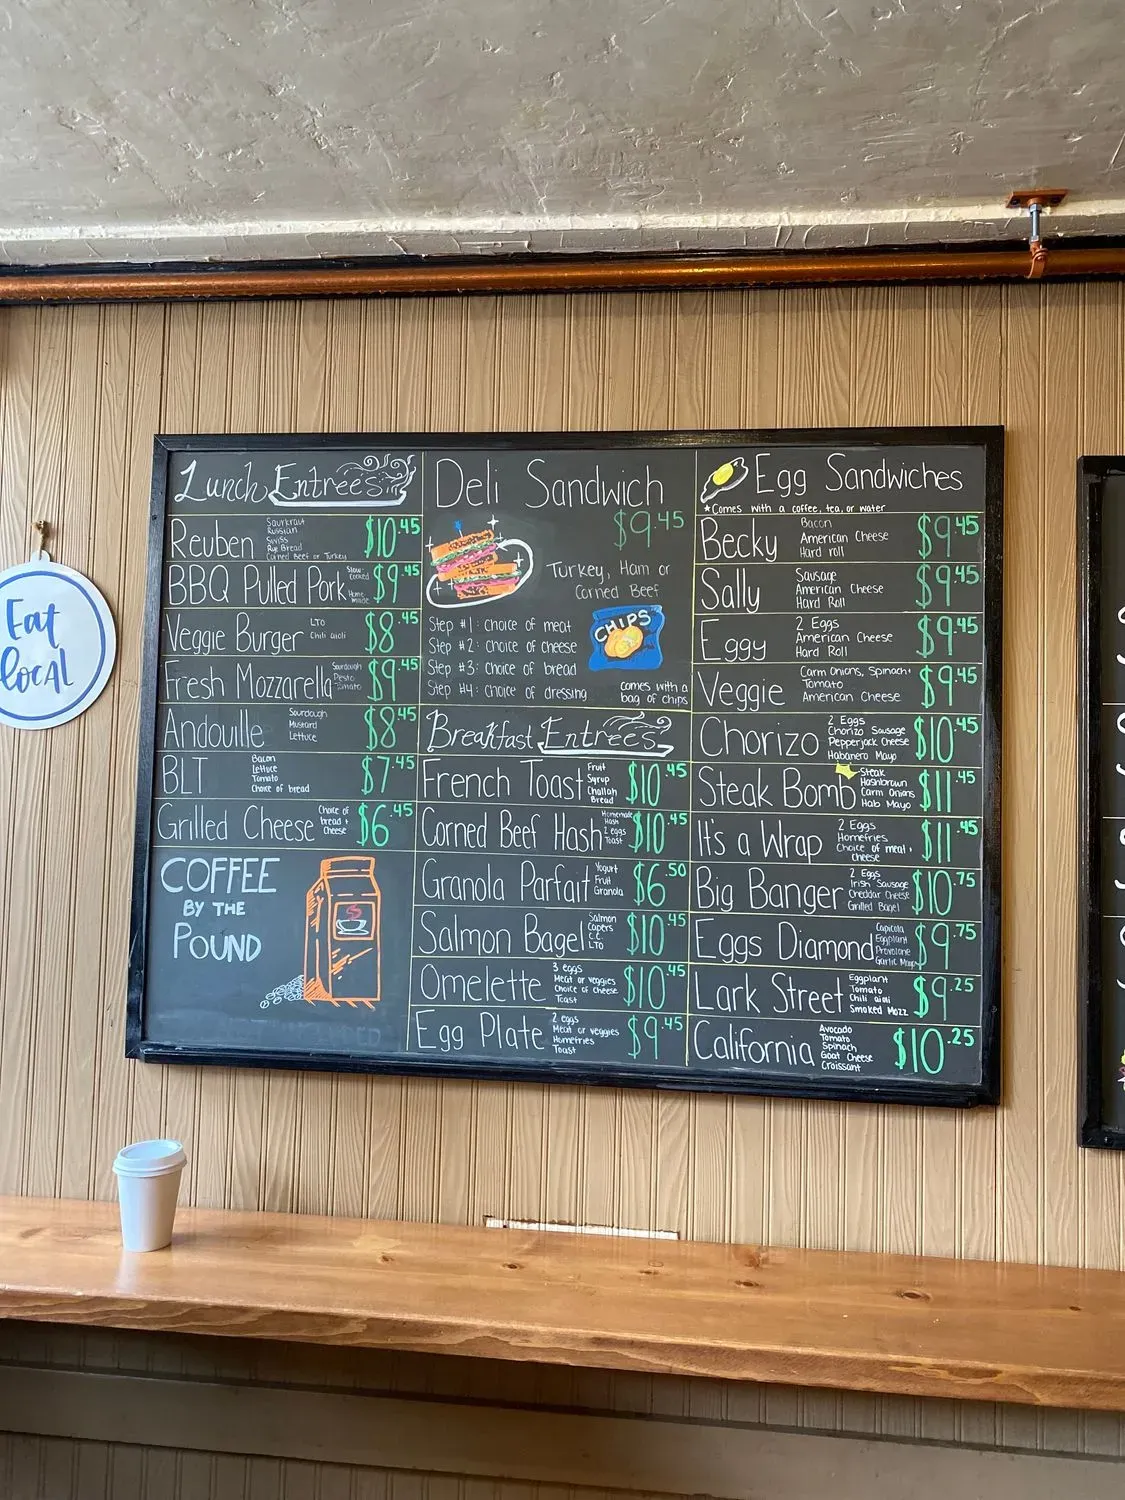 Eat
local
Lunch Entrées
Reuben
Saurkraut
Russian
Swiss
Rye Bread
Corned Beef or Turkey
$10.45
BBQ Pulled Pork
Slow-
Cooked
Home
made
$9.45
Veggie Burger
LTO
Chili aioli
$8.45
Fresh Mozzarella
Sourdough
Pesto
Tomato
$9.45
Andouille
Sourdough
Mustard
Lettuce
$8.45
BLT
Bacon
Lettuce
Tomato
Choice of bread
$7.45
Grilled Cheese
Choice of
bread +
cheese
$6.45
COFFEE
BY THE
POUND
Deli Sandwich
$9.45
Turkey, Ham or
Corned Beef
CHIPS
Step #1: choice of meat
Step #2: choice of cheese
Step #3: choice of bread
Step #4: choice of dressing
comes with a
bag of chips
Breakfast Entrées
French Toast
Fruit
Syrup
Challah
Bread
$10.45
Corned Beef Hash
Homemade
Hash
2 eggs
Toast
$10.45
Granola Parfait
Yogurt
Fruit
Granola
$6.50
Salmon Bagel
Salmon
Capers
C.C.
LTO
$10.45
Omelette
3 eggs
Meat or veggies
Choice of cheese
Toast
$10.45
Egg Plate
2 eggs
Meat or veggies
Homefries
Toast
$9.45
Egg Sandwiches
*Comes with a coffee, tea, or water
Becky
Bacon
American Cheese
Hard roll
$9.45
Sally
Sausage
American Cheese
Hard Roll
$9.45
Eggy
2 Eggs
American Cheese
Hard Roll
$9.45
Veggie
Carm Onions, Spinach,
Tomato
American Cheese
$9.45
Chorizo
2 Eggs
Chorizo Sausage
Pepperjack Cheese
Habanero Mayo
$10.45
Steak Bomb
Steak
Hashbrown
Carm Onions
Hab Mayo
$11.45
It's a Wrap
2 Eggs
Homefries
Choice of meat,
cheese
$11.45
Big Banger
2 Eggs
Irish Sausage
Cheddar Cheese
Grilled Bagel
$10.75
Eggs Diamond
Capicola
Eggplant
Provolone
Garlic Mayo
$9.75
Lark Street
Eggplant
Tomato
Chili aioli
Smoked Mozz
$9.25
California
Avocado
Tomato
Spinach
Goat Cheese
Croissant
$10.25